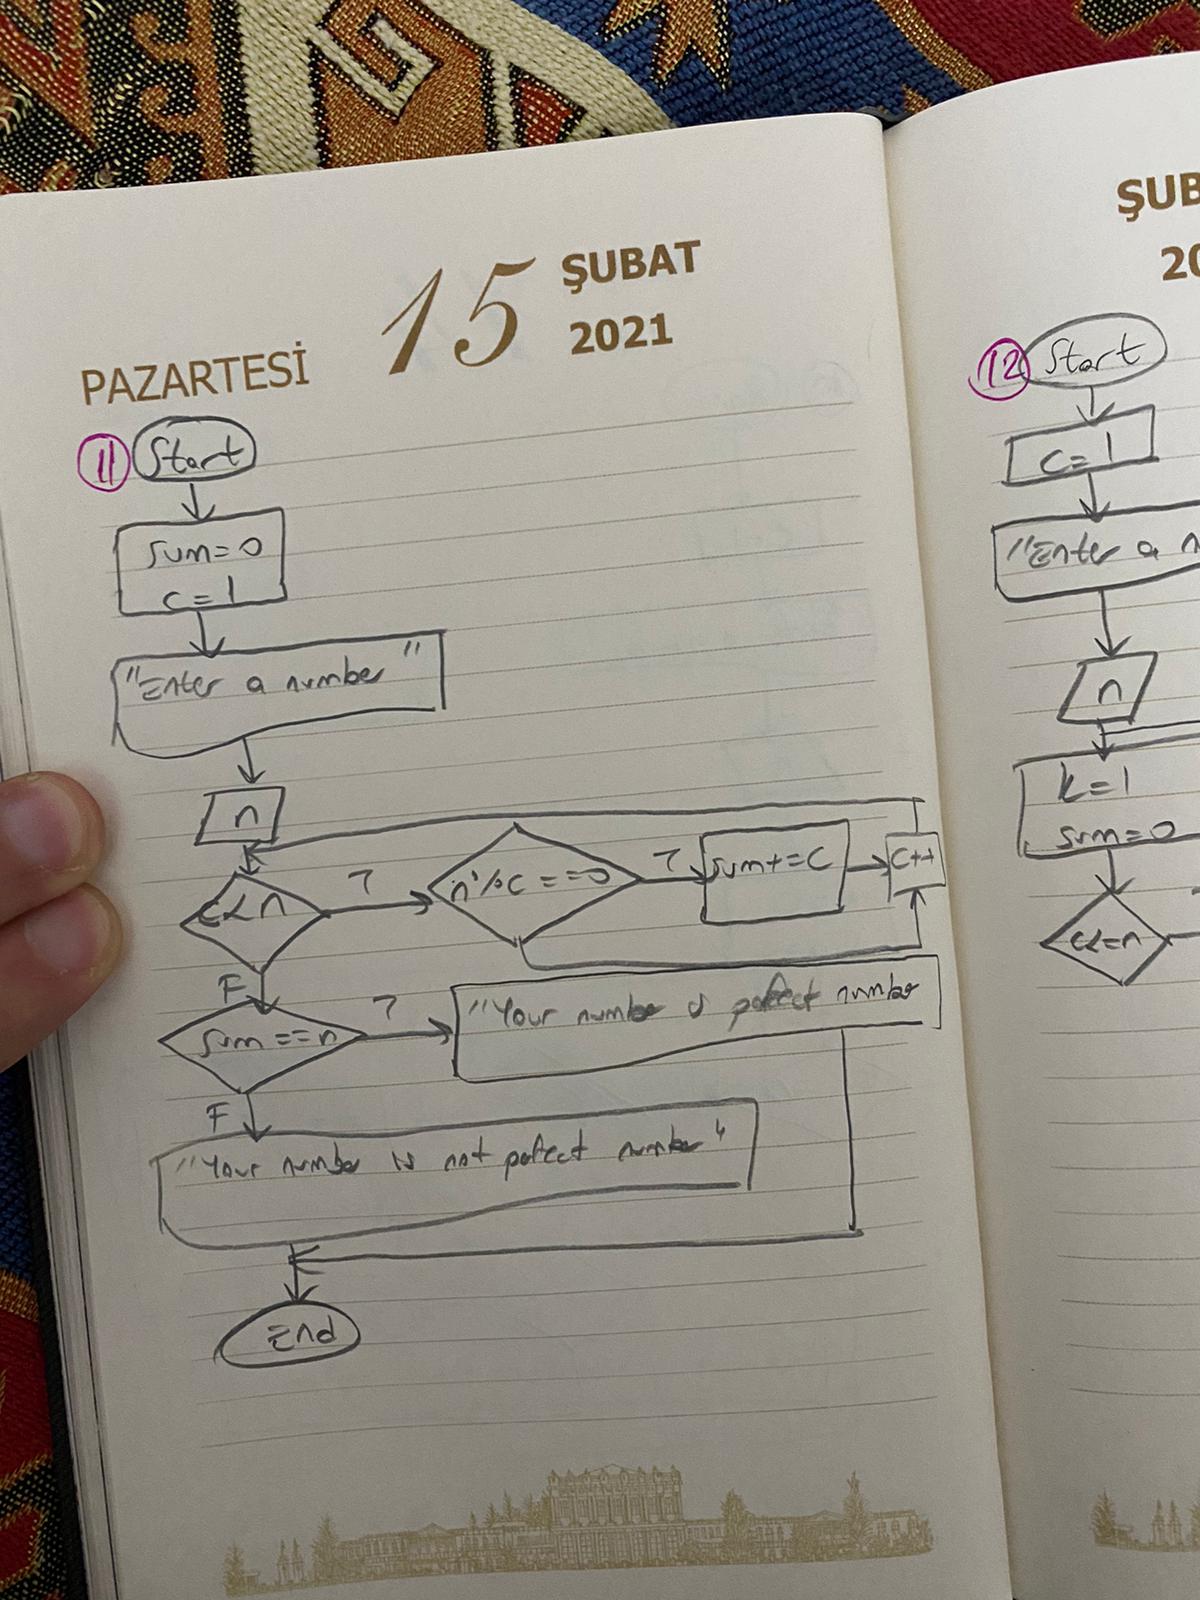 PAZARTESİ 15 ŞUBAT
2021
11 Start
sum=0
c=1
"Enter a number"
n
c<n
T
n%c==0
T
sum+=c
c++
F
sum==n
T
"Your number is pefect number
F
"Your number is not pefect number"
End
ŞUB
20
12 Start
c=1
"Enter a n
n
k=1
sum=0
c<=n